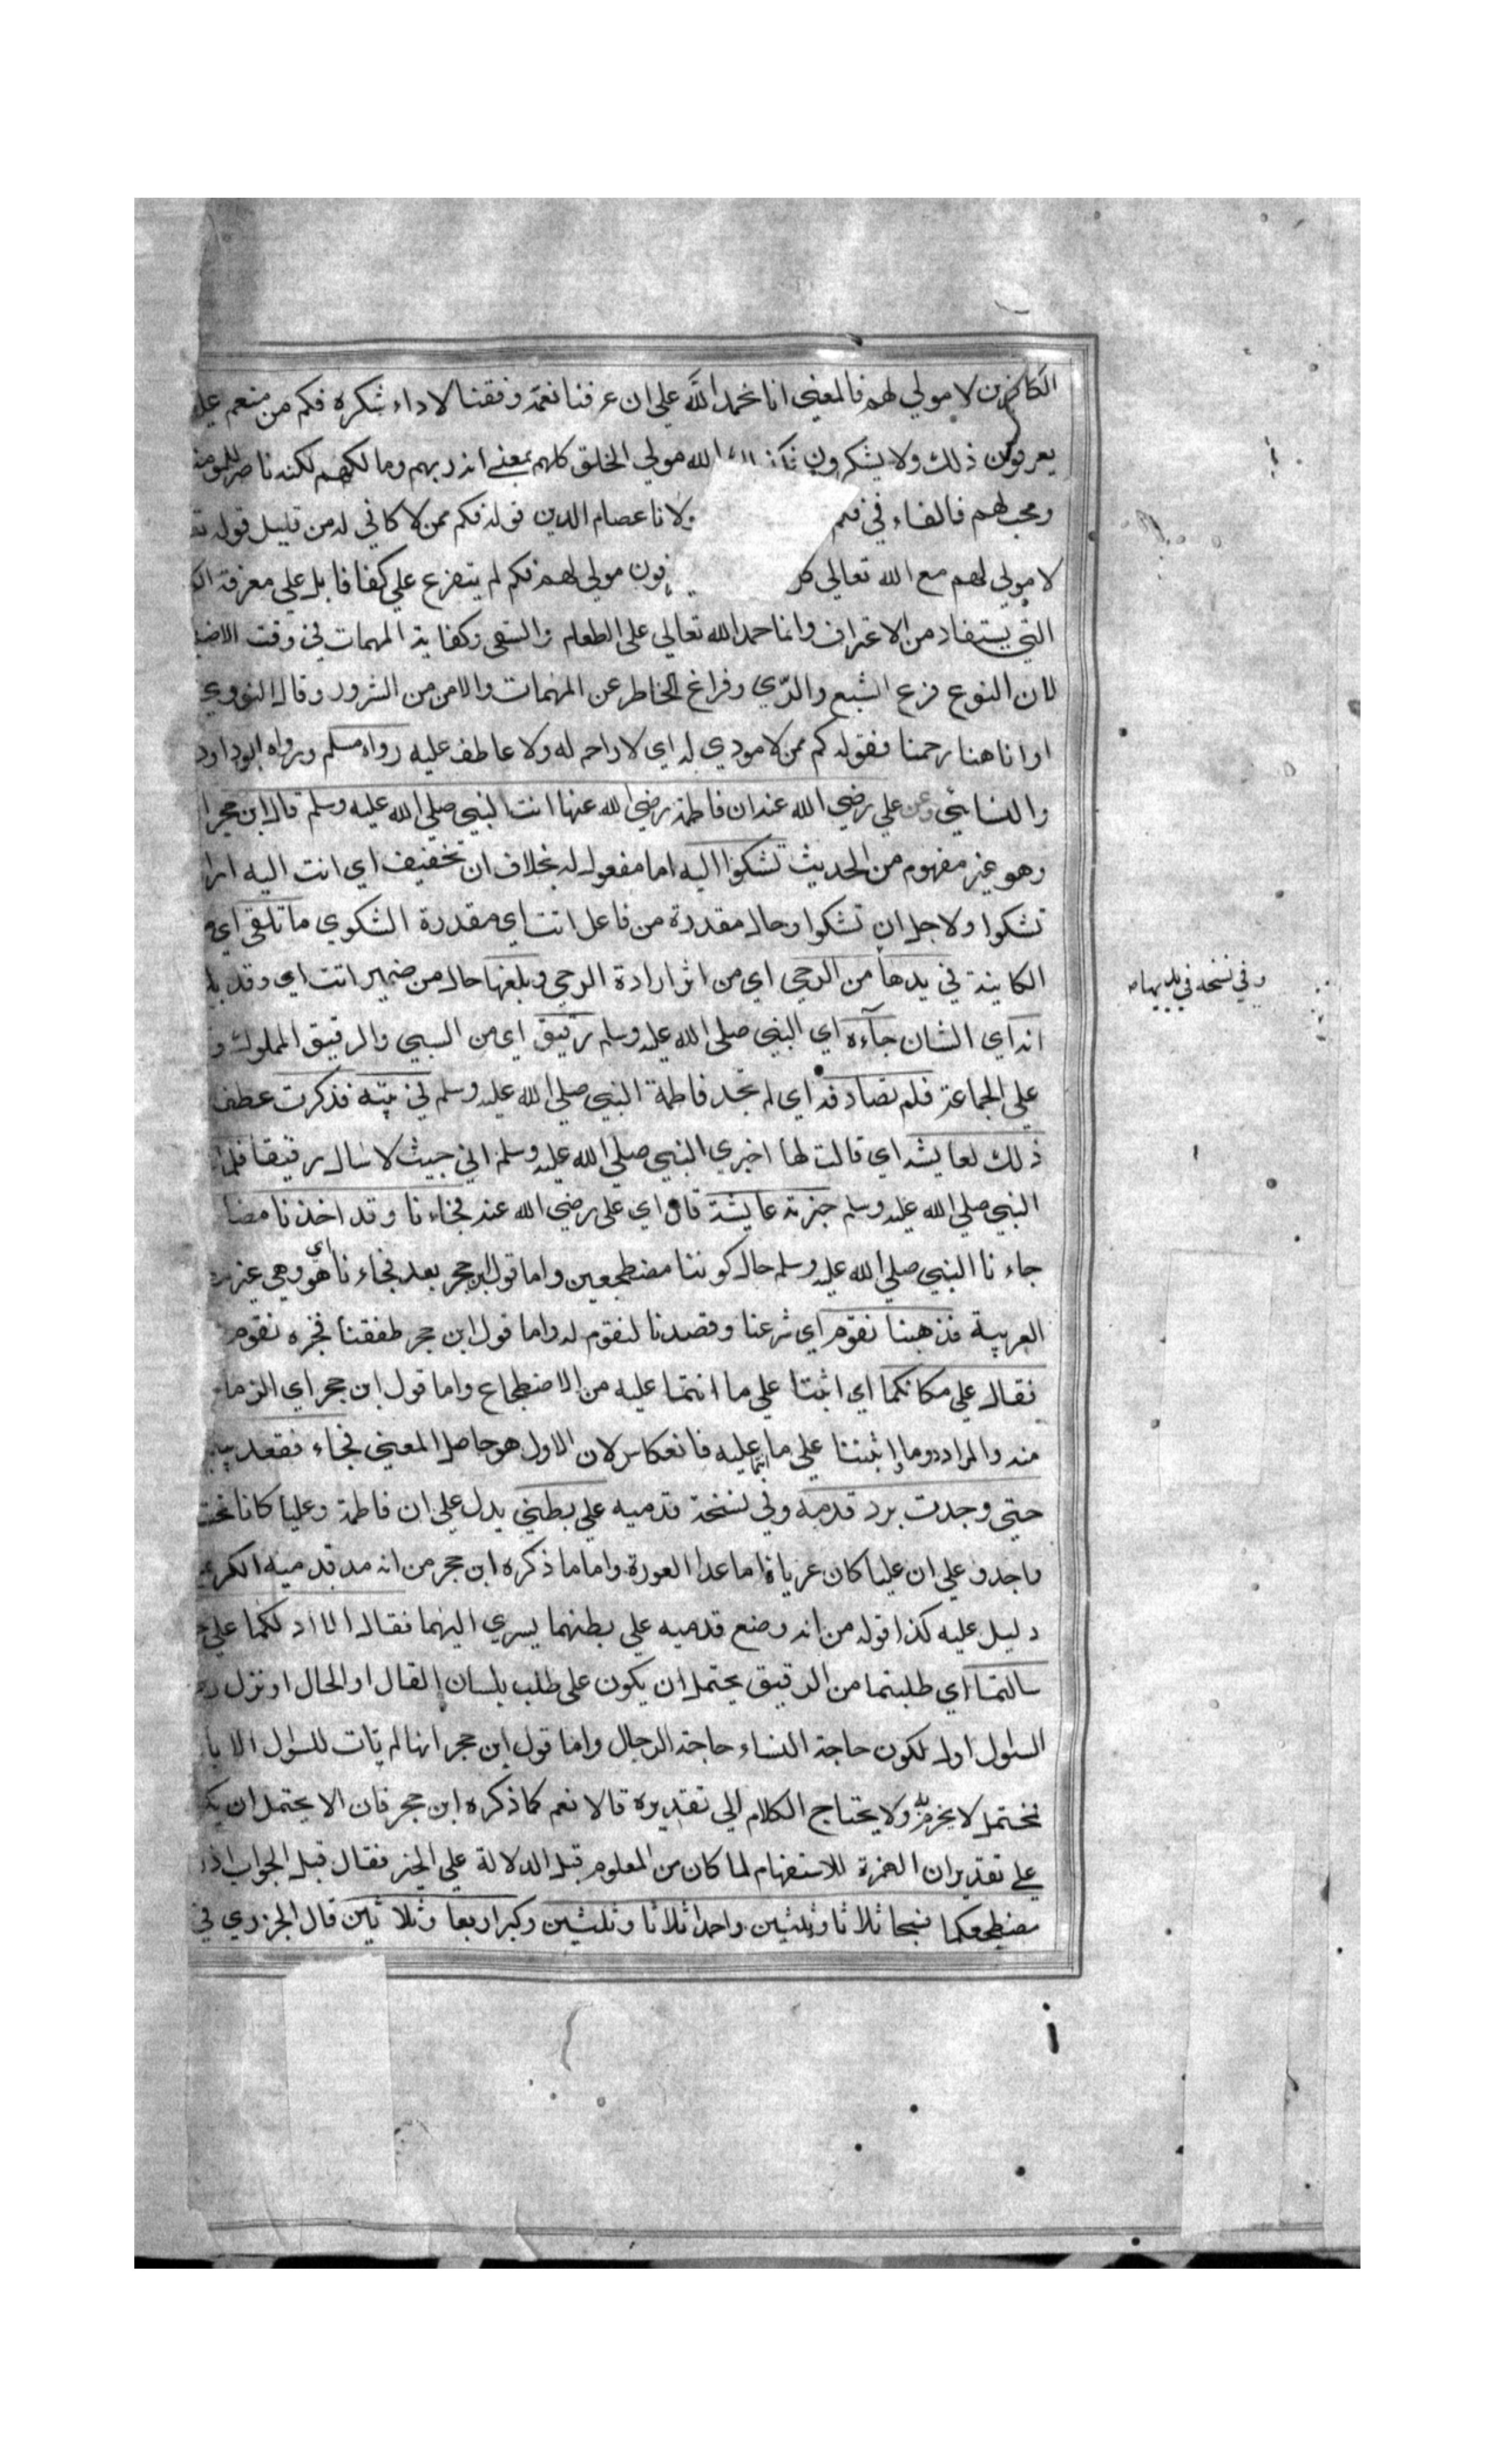 الكافرين لا مولي لهم فالمعني انا نحمد الله علي ان عرفنا نعمه وفقنا لاداء شكره فكم من منعم عليه
يعرفون ذلك ولا يشكرون الله مولي الخلق كلهم بمعني انه ربهم ومالكهم لكنه ناصر للمومنين
ومحب لهم فالفاء في فكم ولانا عصام الدين قوله فكم ممن لا كافي له من قبيل قوله
لا مولي لهم مع الله تعالي فون مولي لهم فكم لم يتفرع علي كفانا بل علي معرفة
التي يستفاد من الاعتراف وانما حمد الله تعالي علي الطعام والسقي وكفاية المهمات في وقت
لان النوع فرع الشبع والرّي وفراغ الخاطر عن المهمات والامن من الشرور وقال النووي
اوانا هنا رحمنا فقوله كم ممن لا مودي له اي لا راحم له ولا عاطف عليه رواه مسلم ورواه ابوداود
والنسائي وعن علي رضي الله عنه ان فاطمة رضي الله عنها اتت النبي صلي الله عليه وسلم قال ابن حجر
وهو غير مفهوم من الحديث تشكوا اليه اما مفعول له بخلاف ان تخفيف اي اتت اليه
تشكوا ولاجل ان تشكوا وحال مقدرة من فاعل اتت اي مقدرة الشكوي ما تلقي اي
الكاينة في يدها من الرحي اي من اثر ارادة الرحي وبلغها حال من ضمير اتت اي وقد
انه اي الشان جآءه اي النبي صلي الله عليه وسلم رقيق اي من السبي والرقيق المملوك
علي الجماعة فلم تصادفه اي لم تجد فاطمة النبي صلي الله عليه وسلم في بيته فذكرت عطف
ذلك لعايشه اي قالت لها اخبري النبي صلي الله عليه وسلم اني جيت لاسال رقيقا فلما
النبي صلي الله عليه وسلم خبرته عايشة قال اي علي رضي الله عنه فجاءنا وقد اخذنا
جاءنا النبي صلي الله عليه وسلم حال كوننا مضطجعين واما قول ابن حجر بعد فجاءنا اي هو وهي
العربية فذهبنا نقوم اي شرعنا وقصدنا لنقوم له واما قول ابن حجر طفقنا نقوم
فقال علي مكانكما اي اثبتا علي ما انتما عليه من الاضطجاع واما قول ابن حجر اي الزما
منه والمراد دوما اثبتنا علي ما انتما عليه فانعكاس لان الاول هو حاصل المعني فجاء فقعد
حتي وجدت برد قدمه وفي نسخة قدميه علي بطني يدل علي ان فاطمة وعليا كانا تحت
واحد و علي ان عليا كان عريانا ما عدا العورة واما ما ذكره ابن حجر من انه مد قدميه
دليل عليه كذا قوله من انه وضع قدميه علي بطنهما يسري اليهما فقال الا ادلكما علي
سالتما اي طلبتما من الرقيق يحتمل ان يكون علي طلب بلسان القال او الحال او نزل
السئول اوله لكون حاجة النساء حاجة الرجال واما قول ابن حجر انها لم تات للسئول
ولا يحتاج الكلام الي تقديره قالا نعم كما ذكره ابن حجر فان الا يحتمل ان
علي تقدير ان الهمزة للاستفهام لما كان من المعلوم قبل الدلالة علي الخير فقال قبل الجواب
مضطجعكما فسبحا ثلاثا وثلثين واحمدا ثلاثا وثلثين وكبرا اربعا وثلاثين قال الجزري في
وفي نسخة في يديها